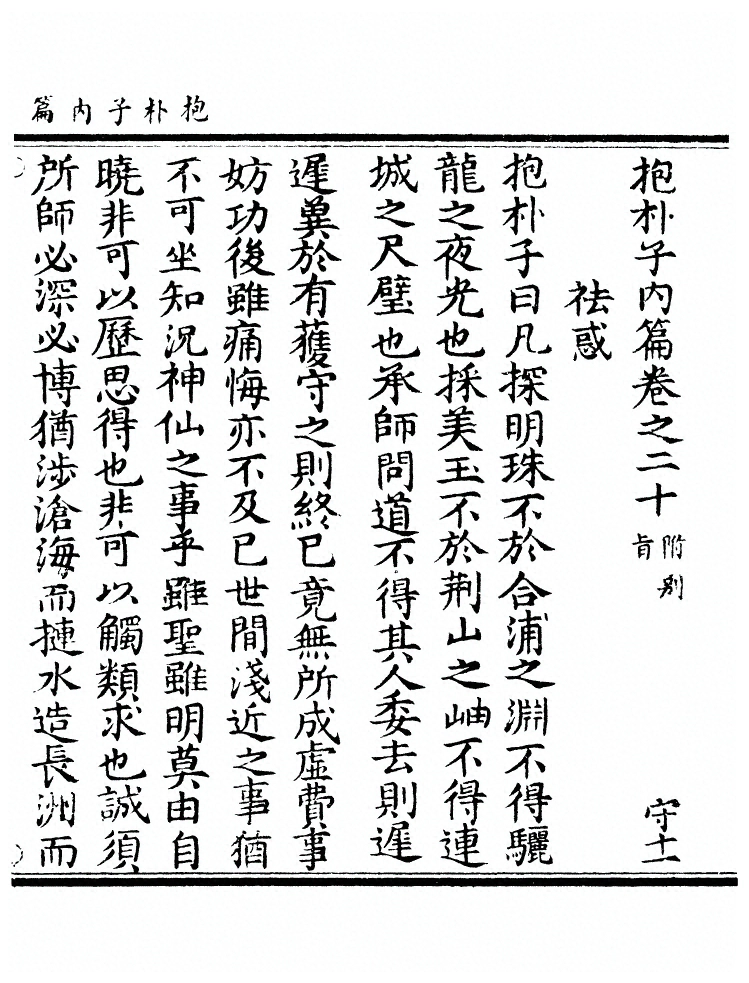 抱朴子内篇
抱朴子内篇卷之二十 附别旨 守十一
祛惑
抱朴子曰凡探明珠不於合浦之淵不得驪
龍之夜光也採美玉不於荆山之岫不得連
城之尺璧也承師問道不得其人委去則遲
遲冀於有獲守之則終已竟無所成虚費事
妨功後雖痛悔亦不及已世間淺近之事猶
不可坐知況神仙之事乎雖聖雖明莫由自
曉非可以歷思得也非可以觸類求也誠須
所師必深必博猶涉滄海而摙水造長洲而